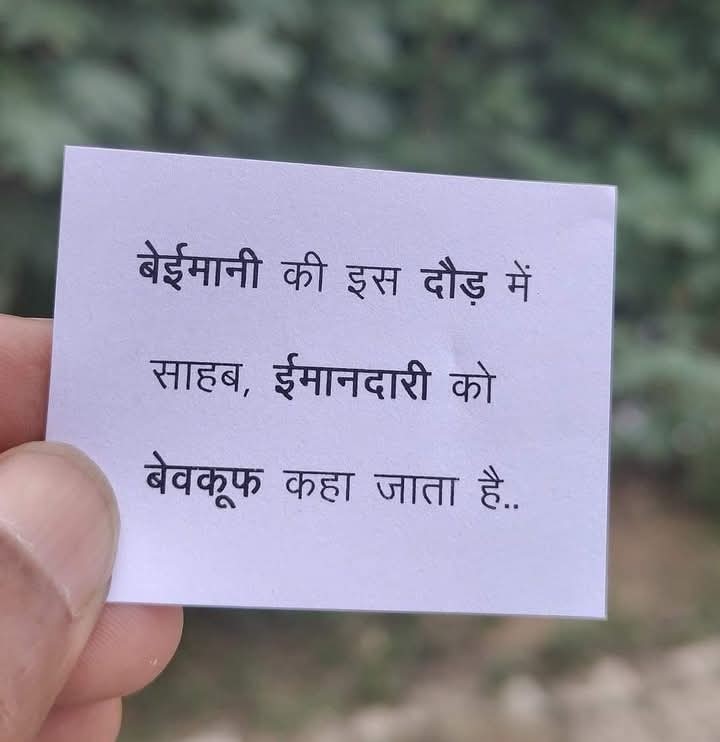 बेईमानी की इस दौड़ में
साहब, ईमानदारी को
बेवकूफ कहा जाता है..